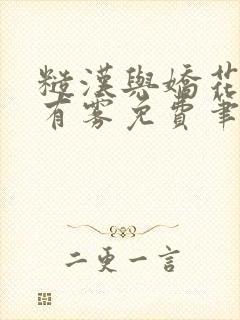 糙漢與嬌花
有霧免費筆
二更一言